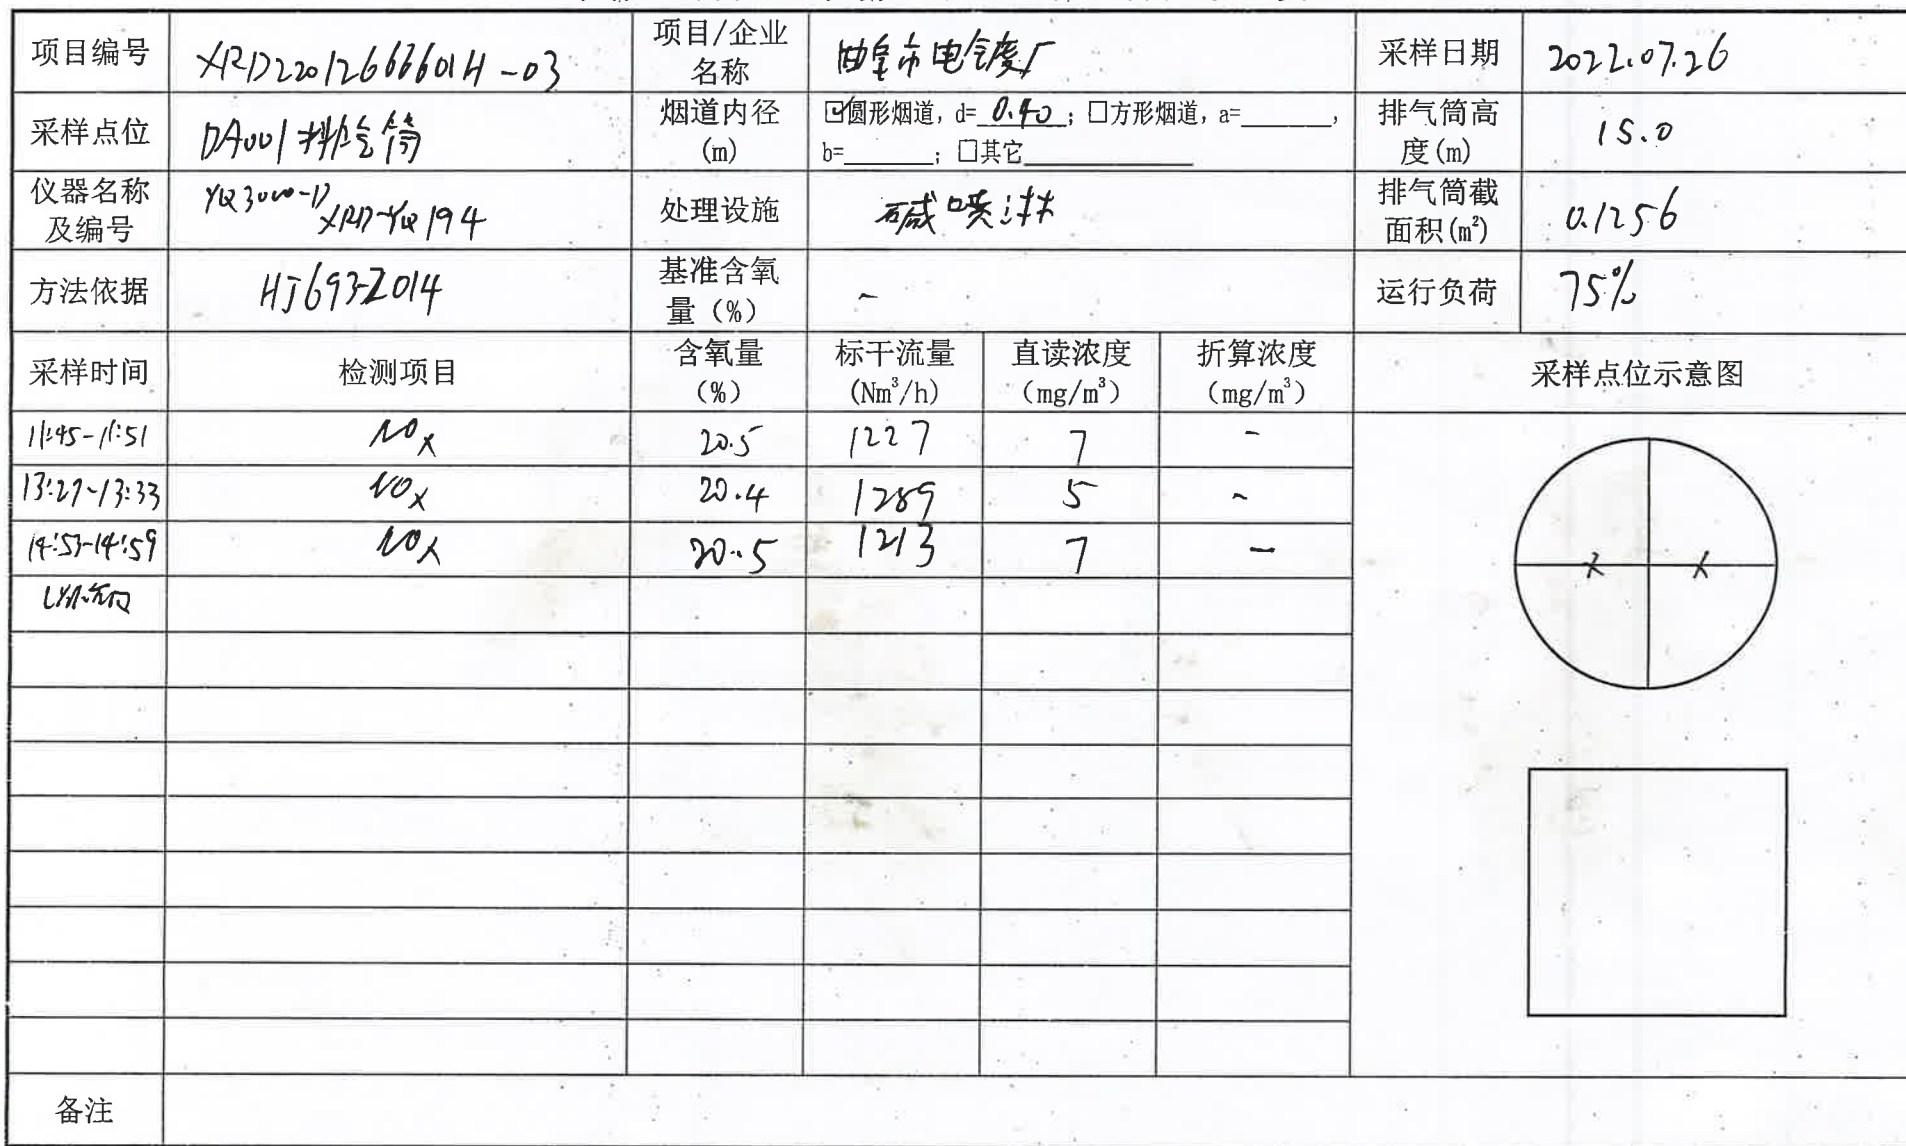 项目编号 XRD22012666601H-03 项目/企业名称 曲阜市电镀厂 采样日期 2022.07.26
采样点位 DA001排气筒 烟道内径(m) ☑圆形烟道, d=0.40; □方形烟道, a=______, b=______; □其它______ 排气筒高度(m) 15.0
仪器名称及编号 YQ3000-D XRD-YQ194 处理设施 碱喷淋 排气筒截面积(m²) 0.1256
方法依据 HJ693-2014 基准含氧量(%) - 运行负荷 75%
采样时间 检测项目 含氧量(%) 标干流量(Nm³/h) 直读浓度(mg/m³) 折算浓度(mg/m³) 采样点位示意图
11:45-11:51 NOx 20.5 1227 7 -
13:27-13:33 NOx 20.4 1289 5 -
14:53-14:59 NOx 20.5 1213 7 -
以下空白
备注